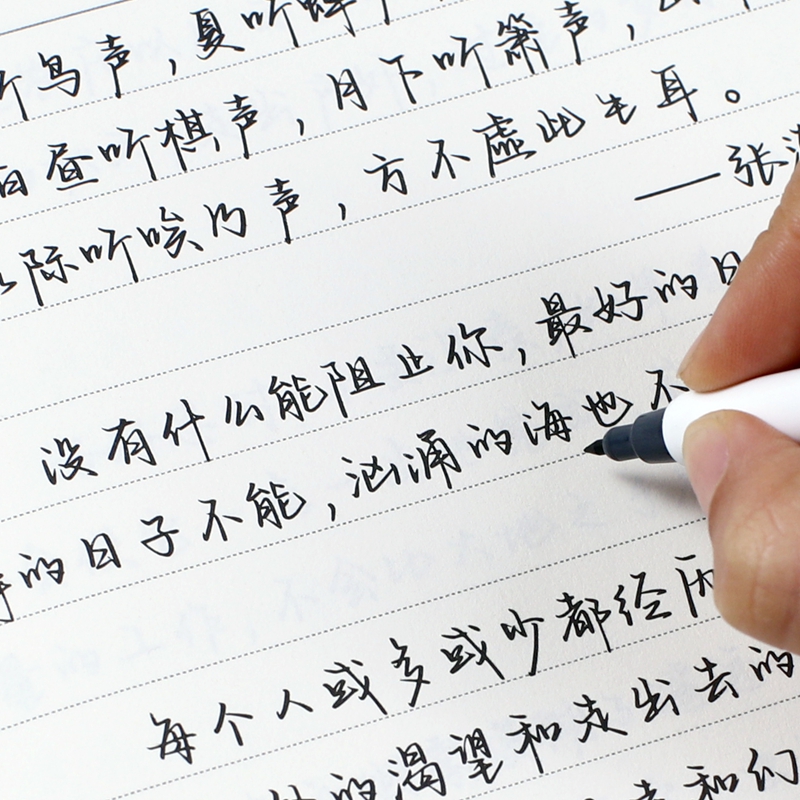 听鸟声，夏听蝉
白昼听棋声，月下听箫声，
际听唉乃声，方不虚此生耳。
——张潮
没有什么能阻止你，最好的日
的日子不能，汹涌的海也不
每个人或多或少都经历
的渴望和走出去的
和幻